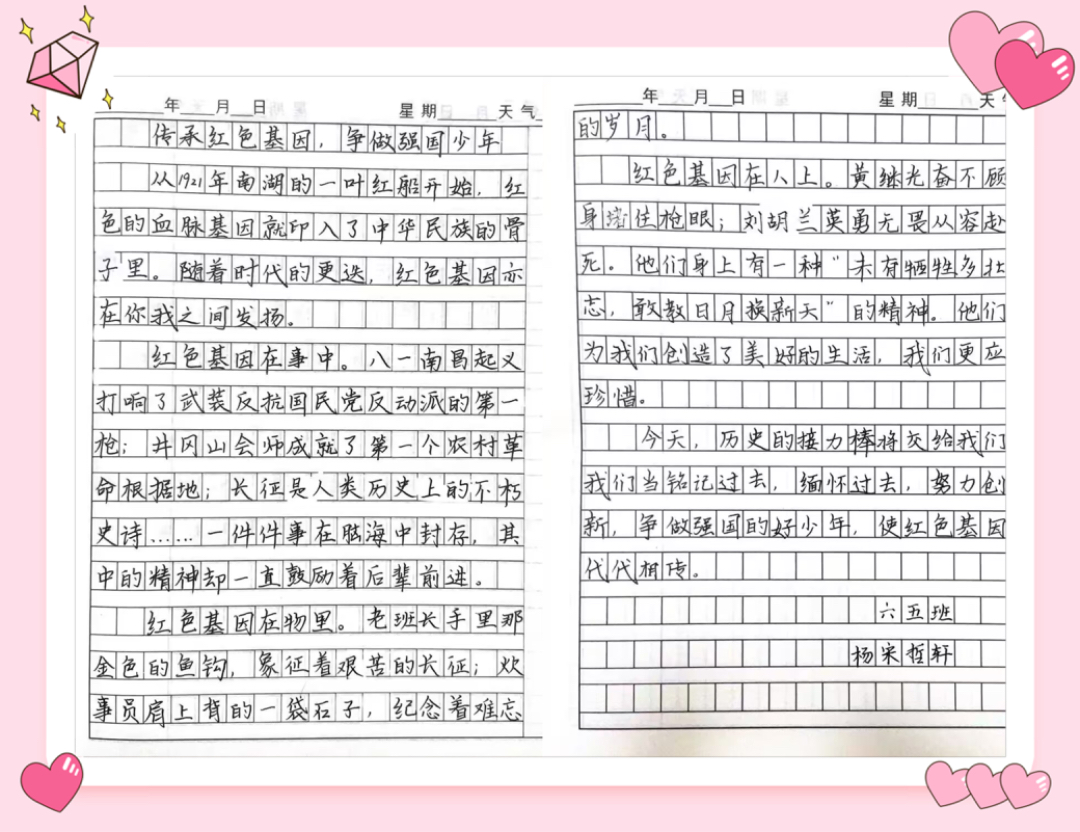 年 月 日 星期 天气
传承红色基因，争做强国少年
从1921年南湖的一叶红船开始，红
色的血脉基因就印入了中华民族的骨
子里。随着时代的更迭，红色基因亦
在你我之间发扬。
红色基因在事中。八一南昌起义
打响了武装反抗国民党反动派的第一
枪；井冈山会师成就了第一个农村革
命根据地；长征是人类历史上的不朽
史诗……一件件事在脑海中封存，其
中的精神却一直鼓励着后辈前进。
红色基因在物里。老班长手里那
金色的鱼钩，象征着艰苦的长征；炊
事员肩上背的一袋石子，纪念着难忘
年 月 日 星期 天
的岁月。
红色基因在人上。黄继光奋不顾
身堵住枪眼；刘胡兰英勇无畏从容赴
死。他们身上有一种“未有牺牲多壮
志，敢教日月换新天”的精神。他们
为我们创造了美好的生活，我们更应
珍惜。
今天，历史的接力棒将交给我们
我们当铭记过去，缅怀过去，努力创
新，争做强国的好少年，使红色基因
代代相传。
六五班
杨宋哲轩